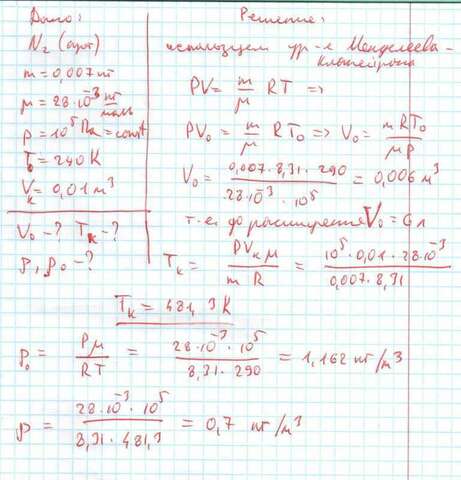 Дано:
N₂ (азот)
m = 0,007 кг
μ = 28·10⁻³ кг/моль
P = 10⁵ Па = const
T₀ = 290 К
Vк = 0,01 м³
V₀ - ? Tк - ?
ρ, ρ₀ - ?
Решение:
используем ур-е Менделеева -
Клапейрона
PV = m/μ RT =>
PV₀ = m/μ RT₀ => V₀ = mRT₀/μP
V₀ = 0,007·8,31·290/28·10⁻³·10⁵ = 0,006 м³
т.е. до расширения V₀ = 6 л
Tк = PVкμ/mR = 10⁵·0,01·28·10⁻³/0,007·8,31
Tк = 481,3 К
ρ₀ = Pμ/RT = 28·10⁻³·10⁵/8,31·290 = 1,162 кг/м³
ρ = 28·10⁻³·10⁵/8,31·481,3 = 0,7 кг/м³